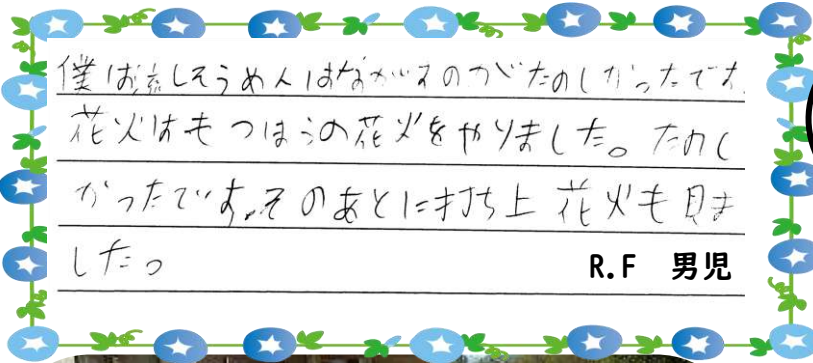 僕は流しそうめんはながすのがたのしかったです。
花火はもつほうの花火をやりました。たのし
かったです。そのあとに打ち上花火も見ま
した。
R.F 男児